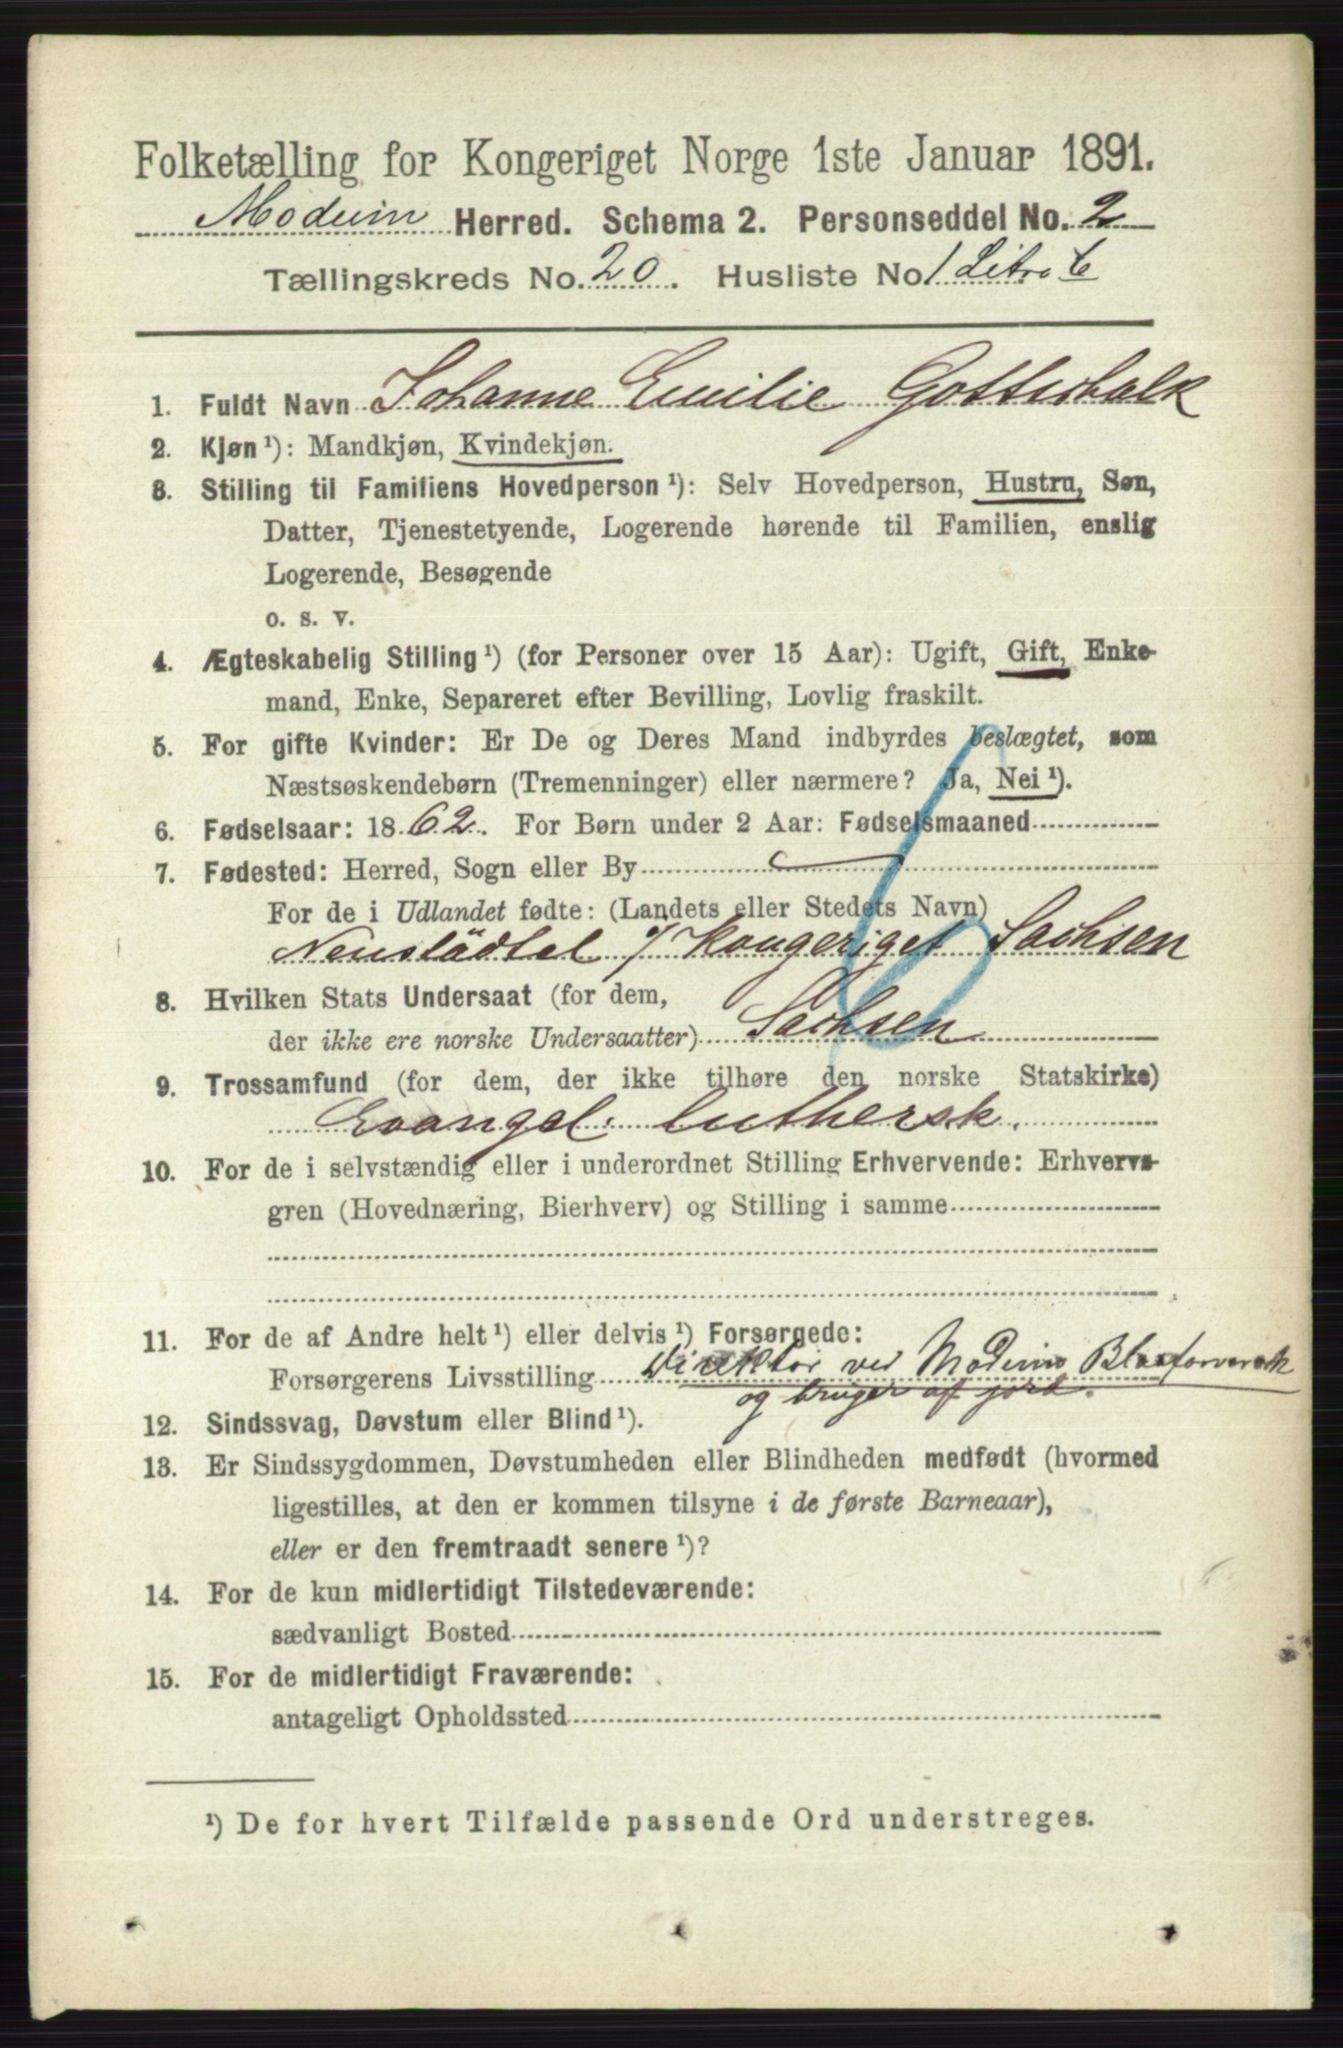 Folketælling for Kongeriget Norge 1ste Januar 1891.
Modum Herred. Schema 2. Personseddel No. 2
Tællingskreds No. 20. Husliste No. 1 Litra C
1. Fuldt Navn Johanne Emilie Gottschalk
2. Kjøn ¹): Mandkjøn, Kvindekjøn.
3. Stilling til Familiens Hovedperson ¹): Selv Hovedperson, Hustru, Søn,
Datter, Tjenestetyende, Logerende hørende til Familien, enslig
Logerende, Besøgende
o. s. v.
4. Ægteskabelig Stilling ¹) (for Personer over 15 Aar): Ugift, Gift, Enke-
mand, Enke, Separeret efter Bevilling, Lovlig fraskilt.
5. For gifte Kvinder: Er De og Deres Mand indbyrdes beslægtet, som
Næstsøskendebørn (Tremenninger) eller nærmere? Ja, Nei ¹).
6. Fødselsaar: 1862. For Børn under 2 Aar: Fødselsmaaned
7. Fødested: Herred, Sogn eller By —
For de i Udlandet fødte: (Landets eller Stedets Navn)
Neustädtel / Kongeriget Sachsen
8. Hvilken Stats Undersaat (for dem,
der ikke ere norske Undersaatter) Sachsen
9. Trossamfund (for dem, der ikke tilhøre den norske Statskirke)
Evangel. luthersk.
10. For de i selvstændig eller i underordnet Stilling Erhvervende: Erhvervs-
gren (Hovednæring, Bierhverv) og Stilling i samme
11. For de af Andre helt ¹) eller delvis ¹) Forsørgede:
Forsørgerens Livsstilling Direktør ved Modums Blaafarveværk
og bruger af jord.
12. Sindssvag, Døvstum eller Blind ¹).
13. Er Sindssygdommen, Døvstumheden eller Blindheden medfødt (hvormed
ligestilles, at den er kommen tilsyne i de første Barneaar),
eller er den fremtraadt senere ¹)?
14. For de kun midlertidigt Tilstedeværende:
sædvanligt Bosted
15. For de midlertidigt Fraværende:
antageligt Opholdssted
¹) De for hvert Tilfælde passende Ord understreges.